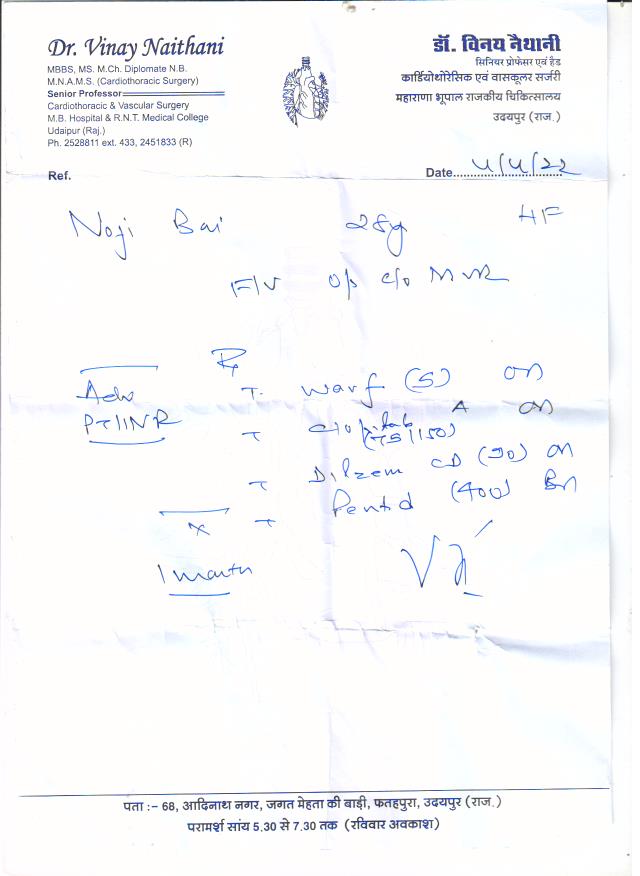 Dr. Vinay Naithani
MBBS, MS. M.Ch. Diplomate N.B.
M.N.A.M.S. (Cardiothoracic Surgery)
Senior Professor
Cardiothoracic & Vascular Surgery
M.B. Hospital & R.N.T. Medical College
Udaipur (Raj.)
Ph. 2528811 ext. 433, 2451833 (R)
डॉ. विनय नैथानी
सिनियर प्रोफेसर एवं हैड
कार्डियोथोरेसिक एवं वासकूलर सर्जरी
महाराणा भूपाल राजकीय चिकित्सालय
उदयपुर (राज.)
Ref.
Date 4/4/22
Noji Bai 28y HF
F/U O/P C/O MVR
Rx
Adv
PT/INR
T. Warf (5) on
T Clopitab A (75/150) on
T Dilzem CD (90) on
T Pentid (400) Bn
x
1 month
पता :- 68, आदिनाथ नगर, जगत मेहता की बाड़ी, फतहपुरा, उदयपुर (राज.)
परामर्श सांय 5.30 से 7.30 तक (रविवार अवकाश)